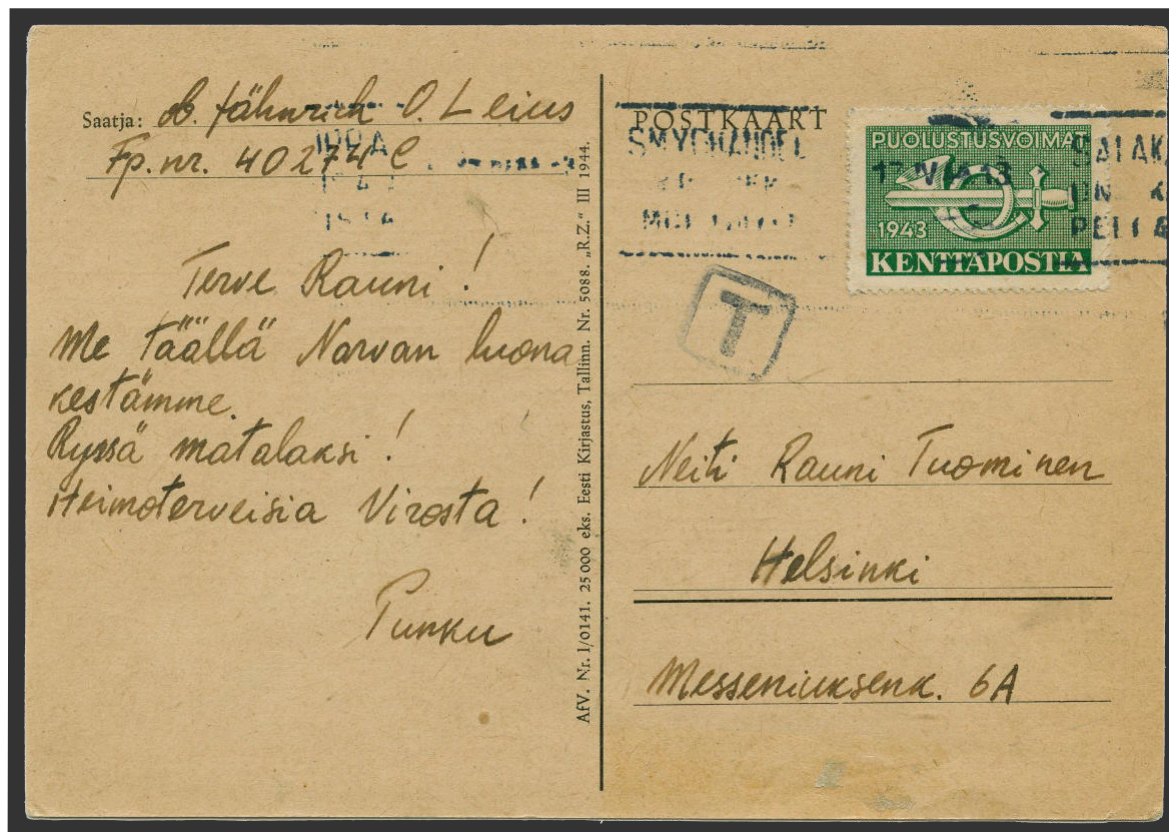 Saatja: Ob. fähnrich O. Leius
Fp. nr. 40274 C
Terve Rauni!
Me täällä Narvan luona
kestämme.
Ryssä matalaksi!
Heimoterveisia Virosta!
Punku
AfV. Nr. 1/0141. 25 000 eks. Eesti Kirjastus, Tallinn. Nr. 5088. „R.Z.“ III 1944.
POSTKAART
SMYGHANDEL
PUOLUSTUSVOIMAT
1943
KENTTÄPOSTIA
T
Neiti Rauni Tuominen
Helsinki
Messeniuksenk. 6A